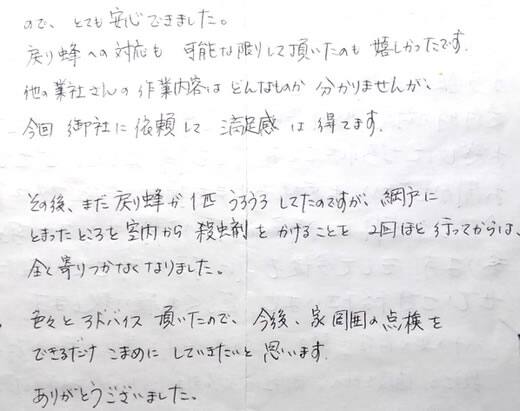 ので、とても安心できました。
戻り蜂への対応も 可能な限りして頂いたのも 嬉しかったです.
他の業社さんの作業内容は どんなものか 分かりませんが、
今回 御社に依頼して 満足感は 得てます.
その後、まだ戻り蜂が 1匹 うろうろ してたのですが、網戸に
とまったところを室内から 殺虫剤を かけることを 2回ほど 行ってからは、
全く寄りつかなくなりました。
色々とアドバイス 頂いたので、今後、家周囲の点検を
できるだけ こまめに していきたいと 思います.
ありがとうございました。